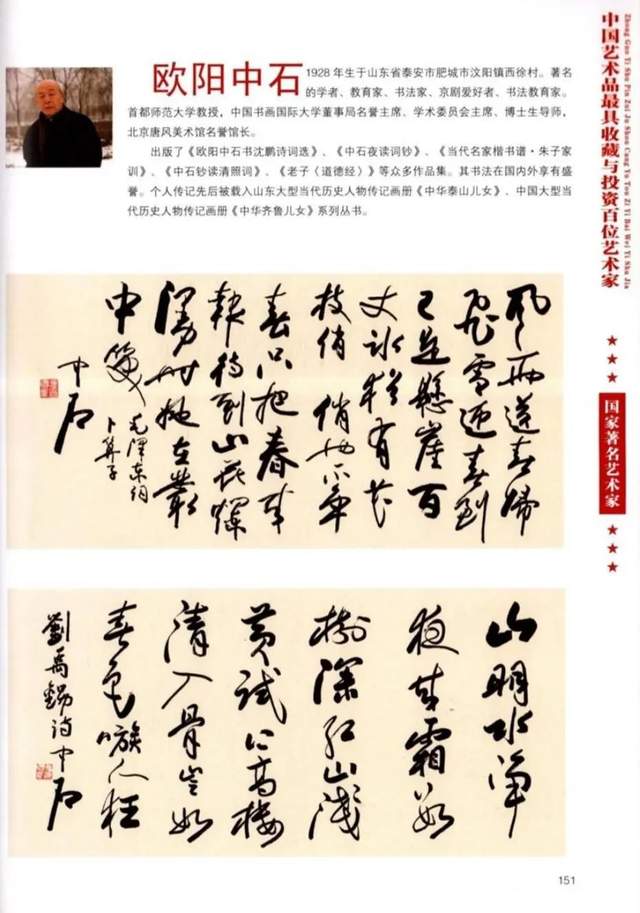 欧阳中石
1928 年生于山东省泰安市肥城市汶阳镇西徐村。著名
的学者、教育家、书法家、京剧爱好者、书法教育家。
首都师范大学教授，中国书画国际大学董事局名誉主席、学术委员会主席、博士生导师，
北京唐风美术馆名誉馆长。
出版了《欧阳中石书沈鹏诗词选》、《中石夜读词钞》、《当代名家楷书谱·朱子家
训》、《中石钞读清照词》、《老子〈道德经〉》等众多作品集。其书法在国内外享有盛
誉。个人传记先后被载入山东大型当代历史人物传记画册《中华泰山儿女》、中国大型当
代历史人物传记画册《中华齐鲁儿女》系列丛书。
風雨送春歸
飛雪迎春到
已是懸崖百
丈冰猶有花
枝俏 俏也不爭
春只把春來
報待到山花爛
漫時她在叢
中笑
毛澤東詞
卜算子
中石
山明水淨
夜來霜數
樹深紅出淺
黃試上高樓
清入骨豈如
春色嗾人狂
劉禹錫詩中石
Zhong Guo Yi Shu Pin Zui Ju Shou Cang Yu Tou Zi Yi Bai Wei Yi Shu Jia
中国艺术品最具收藏与投资百位艺术家
国家著名艺术家
151